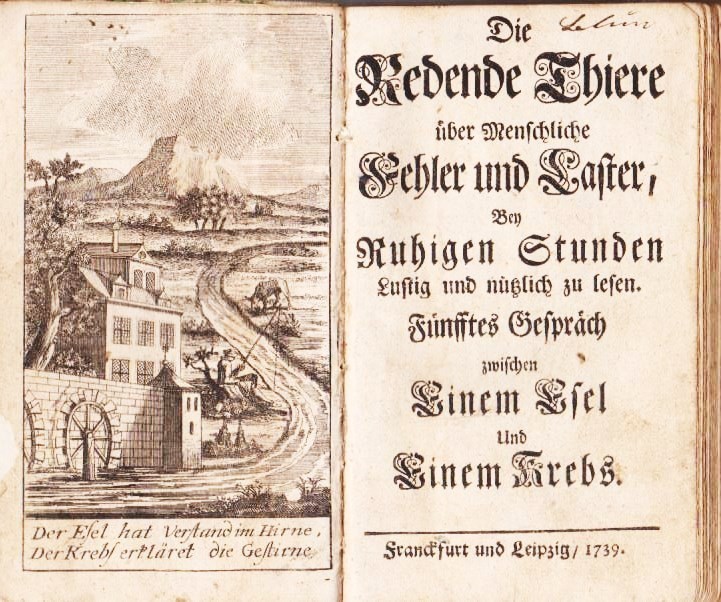 Der Eſel hat Verſtand im Hirne,
Der Krebſ erkläret die Geſtirne,
Die
Redende Thiere
über Menſchliche
Fehler und Laſter,
Bey
Ruhigen Stunden
Luſtig und nützlich zu leſen.
Fünfftes Geſpräch
zwiſchen
Einem Eſel
Und
Einem Krebs.
Franckfurt und Leipzig / 1739.